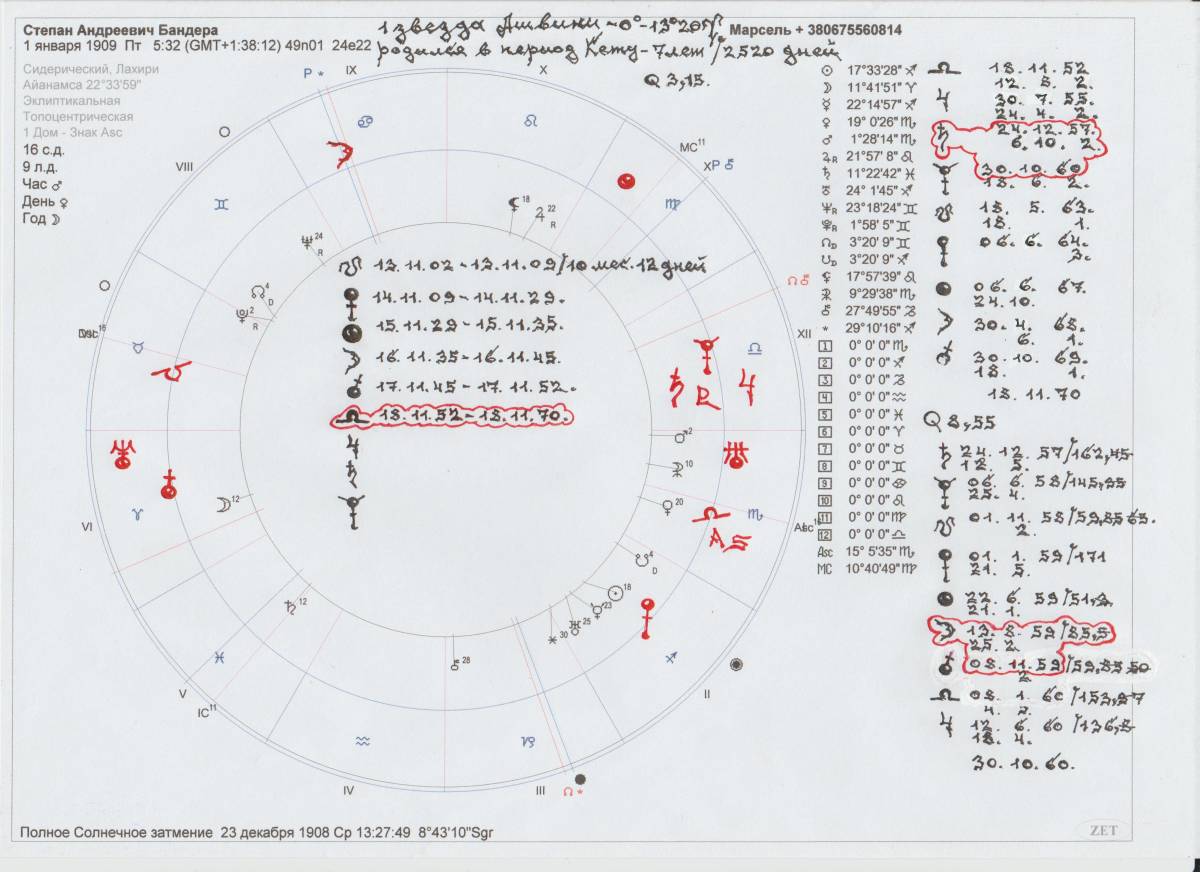 Степан Андреевич Бандера
1 января 1909 Пт 5:32 (GMT+1:38:12) 49n01 24e22
1 звезда Ашвини - 0° - 13°20'♈
Марсель + 380675560814
родился в период Кету - 7 лет / 2520 дней
Q 3,15.
Сидерический, Лахири
Айанамса 22°33'59"
Эклиптикальная
Топоцентрическая
1 Дом - Знак Asc
16 с.д.
9 л.д.
Час ♂
День ♀
Год ☽
P *
IX
X
VIII
MC 11
XI
P ⚷
XII
VI
V
IC 11
IV
III
II
Asc
☊ ⚷
☊ *
☋ 13.11.02 - 13.11.09 / 10 мес. 12 дней
♀ 14.11.09 - 14.11.29.
15.11.29 - 15.11.35.
☽ 16.11.35 - 16.11.45.
♂ 17.11.45 - 17.11.52.
☊ 18.11.52 - 18.11.70.
♃
♄
☿
☉ 17°33'28" ♐
☽ 11°41'51" ♈
☿ 22°14'57" ♐
♀ 19° 0'26" ♏
♂ 1°28'14" ♏
♃R 21°57' 8" ♌
♄ 11°22'42" ♓
♅ 24° 1'45" ♐
♆R 23°18'24" ♊
♇R 1°58' 5" ♊
☊D 3°20' 9" ♊
☋D 3°20' 9" ♐
⚸ 17°57'39" ♌
9°29'38" ♏
⚷ 27°49'55" ♑
* 29°10'16" ♐
1 0° 0' 0" ♏
2 0° 0' 0" ♐
3 0° 0' 0" ♑
4 0° 0' 0" ♒
5 0° 0' 0" ♓
6 0° 0' 0" ♈
7 0° 0' 0" ♉
8 0° 0' 0" ♊
9 0° 0' 0" ♋
10 0° 0' 0" ♌
11 0° 0' 0" ♍
12 0° 0' 0" ♎
Asc 15° 5'35" ♏
MC 10°40'49" ♍
☊ 18.11.52
12. 8. 2.
♃ 30. 7. 55.
24. 4. 2.
♄ 24.12.57.
6. 10. 2.
☿ 30.10.60
18. 6. 2.
☋ 18. 5. 63.
18. 1.
♀ 06. 6. 64.
3.
06. 6. 67.
24.10.
☽ 30. 4. 68.
6. 1.
♂ 30.10. 69.
18. 1.
18.11.70
Q 8,55
♄ 24. 12. 57/162,45
12. 5.
☿ 06. 6. 58/145,35
25. 4.
☋ 01. 11. 58/59,85 63.
2.
♀ 01. 1. 59/171
21. 5.
22. 6. 59/51,3
21. 1.
☽ 13. 8. 59/85,5
25. 2.
♂ 08. 11. 59/59,85 50
2
☊ 08. 1. 60/153,87
4. 5.
♃ 12. 6. 60/136,8
18. 4.
30.10.60.
Полное Солнечное затмение 23 декабря 1908 Ср 13:27:49 8°43'10"Sgr
ZET